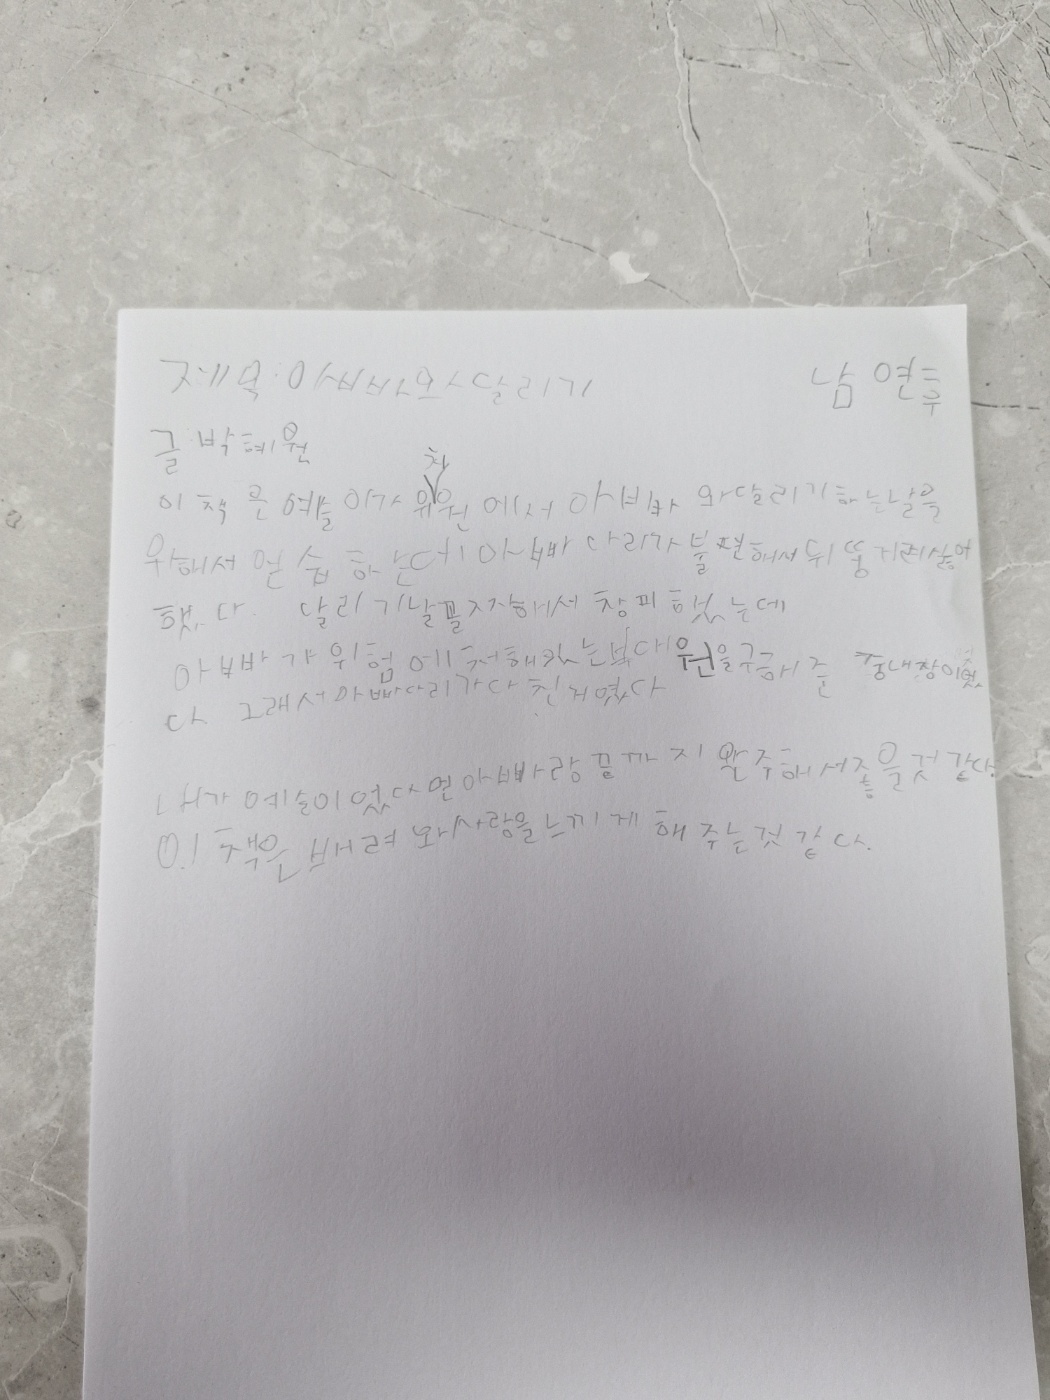 제목:아빠와달리기 남연후
글:박혜원
이 책 은 예술 이가 유치원 에서 아빠 와달리기하는날을
위해서 연습 하는데 아빠 다리가 불편해서 뒤뚱 거려싫어
했다. 달리기날꼴지해서 창피했는데
아빠 가 위험에처해있는부대원을구해준 중대장이였
다 그래서아빠다리가다친거였다
내가 예술이였다면아빠랑끝까지 완주해서좋을것 같다
이 책은 배려 와사랑을느끼게 해 주는것 같다.